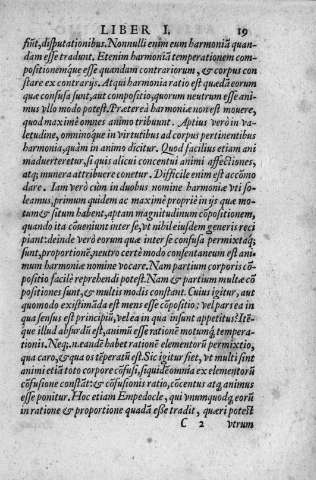 LIBER I. 19
fiũt, disputationibus. Nonnulli enim eum harmoniã quan-
dam esse tradunt. Etenim harmoniã temperationem com-
positionemq́ue esse quandam contrariorum, & corpus con
stare ex contrarijs. Atqui harmonia ratio est quædã eorum
quæ confusa sunt, aut compositio, quorum neutrum esse ani-
mus vllo modo potest. Præterea harmoniæ non est mouere,
quod maximè omnes animo tribuunt. Aptius verò in va-
letudine, omninoq́ue in virtutibus ad corpus pertinentibus
harmonia, quàm in animo dicitur. Quod facilius etiam ani
maduerteretur, si quis alicui concentui animi affectiones,
atq; munera attribuere conetur. Difficile enim est accõmo
dare. Iam verò cùm in duobus nomine harmoniæ vti so-
leamus, primum quidem ac maximè propriè in ijs quæ mo-
tum & situm habent, aptam magnitudinum cõpositionem,
quando ita cõueniunt inter se, vt nihil eiusdem generis reci
piant: deinde verò eorum quæ inter se confusa permixtaq́;
sunt, proportionẽ, neutro certè modo consentaneum est ani-
mum harmoniæ nomine vocare. Nam partium corporis cõ-
positio facilè reprehendi potest. Nam & partium multæ cõ
positiones sunt, & multis modis constant. Cuius igitur, aut
quomodo existimãda est mens esse cõpositio; vel pars ea in
qua sensus est principiũ, vel ea in qua insunt appetitus? Itẽ-
que illud absurdũ est, animũ esse rationẽ motumq́; tempera-
tionis. Neq; n. eandẽ habet rationẽ elementorũ permixtio,
qua caro, & qua os tẽperatũ est. Sic igitur fiet, vt multi sint
animi etiã toto corpore cõfusi, siquidẽ omnia ex elementorũ
cõfusione constãt: & cõfusionis ratio, cõcentus atq; animus
esse ponitur. Hoc etiam Empedocle, qui vnumquodq; eorũ
in ratione & proportione quadã esse tradit, quæri potest
C 2 vtrum